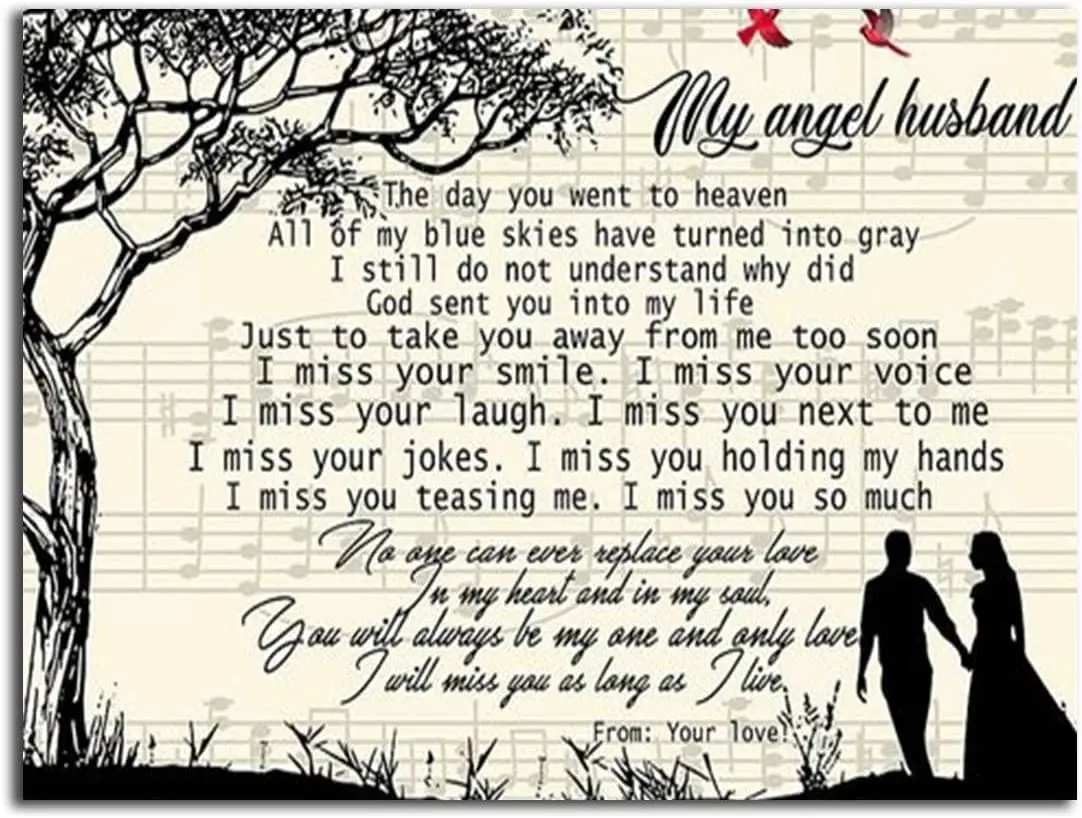 My angel husband
The day you went to heaven
All of my blue skies have turned into gray
I still do not understand why did
God sent you into my life
Just to take you away from me too soon
I miss your smile. I miss your voice
I miss your laugh. I miss you next to me
I miss your jokes. I miss you holding my hands
I miss you teasing me. I miss you so much
No one can ever replace your love
In my heart and in my soul,
You will always be my one and only love
I will miss you as long as I live,
From: Your love!